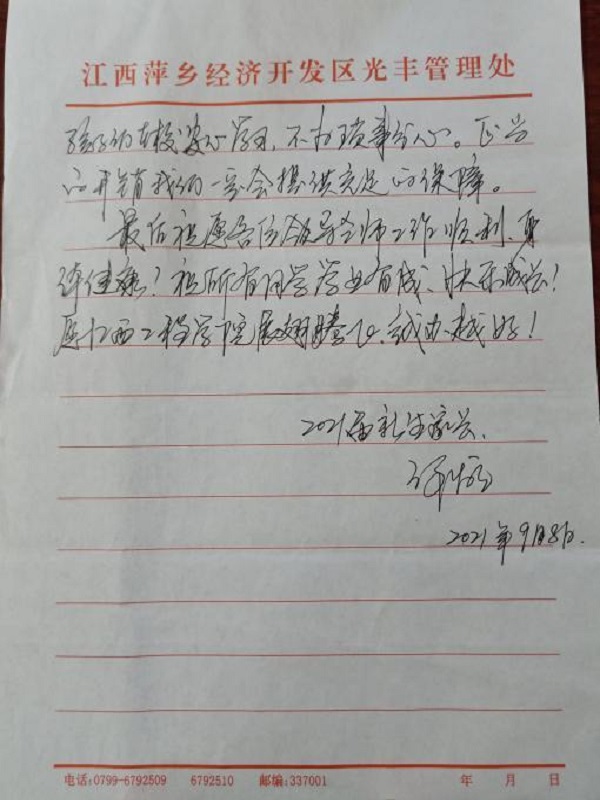 江西萍乡经济开发区光丰管理处
孩子们在校安心学习,不为琐事分心。正当
的开销我们一定会提供充足的保障。
最后祝愿各位领导老师工作顺利、身
体健康!祝所有同学学业有成、快乐成长!
愿江西工程学院展翅腾飞、越办越好!
2021届新生家长、
2021年9月8日.
电话:0799-6792509 6792510 邮编:337001 年 月 日